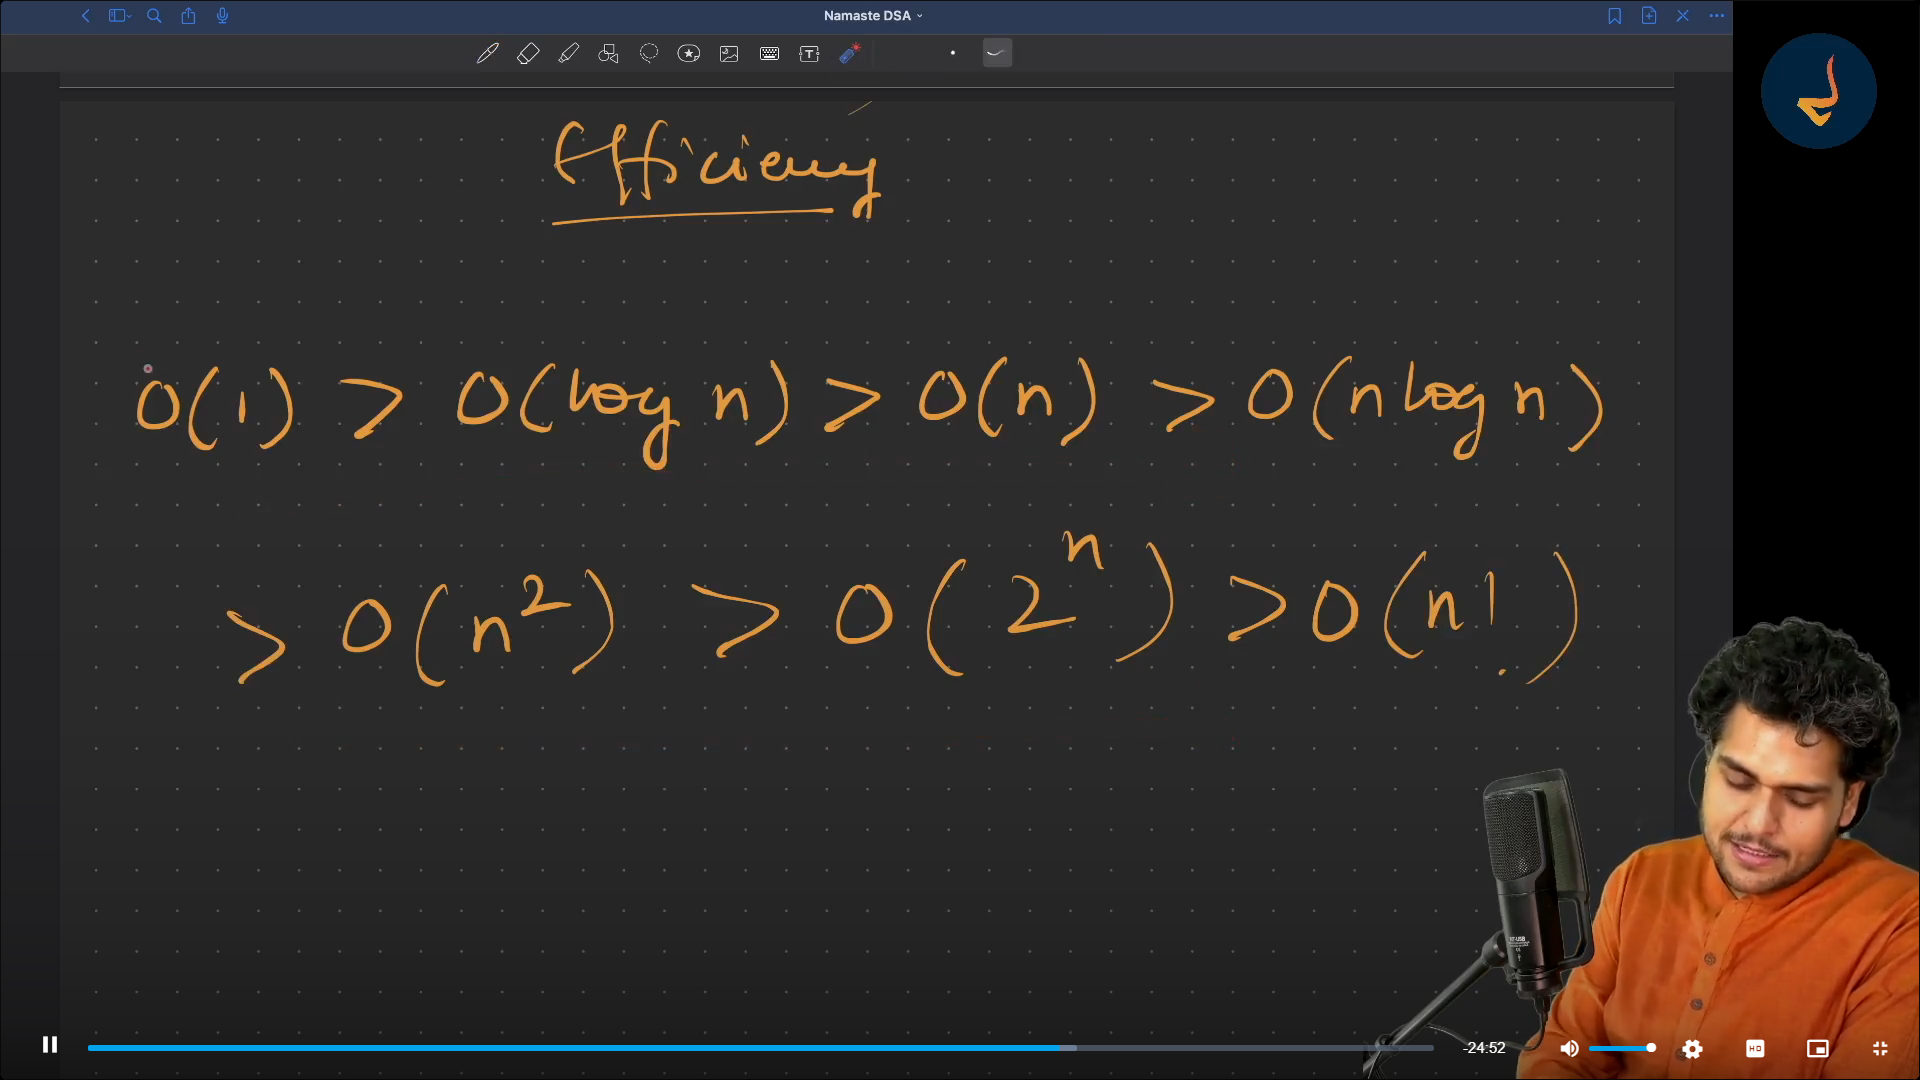 Namaste DSA
Efficiency
O(1) > O(log n) > O(n) > O(n log n)
> O(n²) > O(2ⁿ) > O(n!)
-24:52
HD